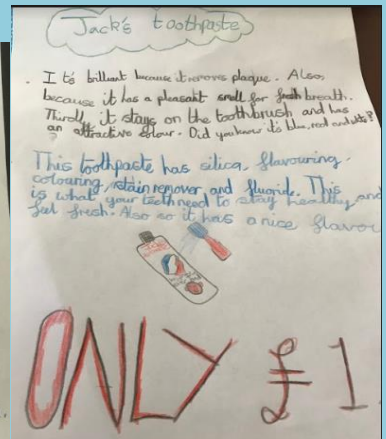 Jack's toothpaste
It's brilliant because it removes plaque. Also,
because it has a pleasant smell for fresh breath.
Thirdly it stays on the toothbrush and has
an attractive colour. Did you know it's blue, red and white?
This toothpaste has silica, flavouring,
colouring, stain remover and fluoride. This
is what your teeth need to stay healthy and
feel fresh. Also so it has a nice flavor
ONLY £1